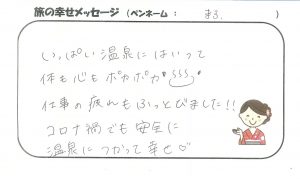 旅の幸せメッセージ（ペンネーム： まる。）
いっぱい温泉にはいって
体も心もポカポカ
仕事の疲れもふっとびました!!
コロナ禍でも安全に
温泉につかって幸せ♡